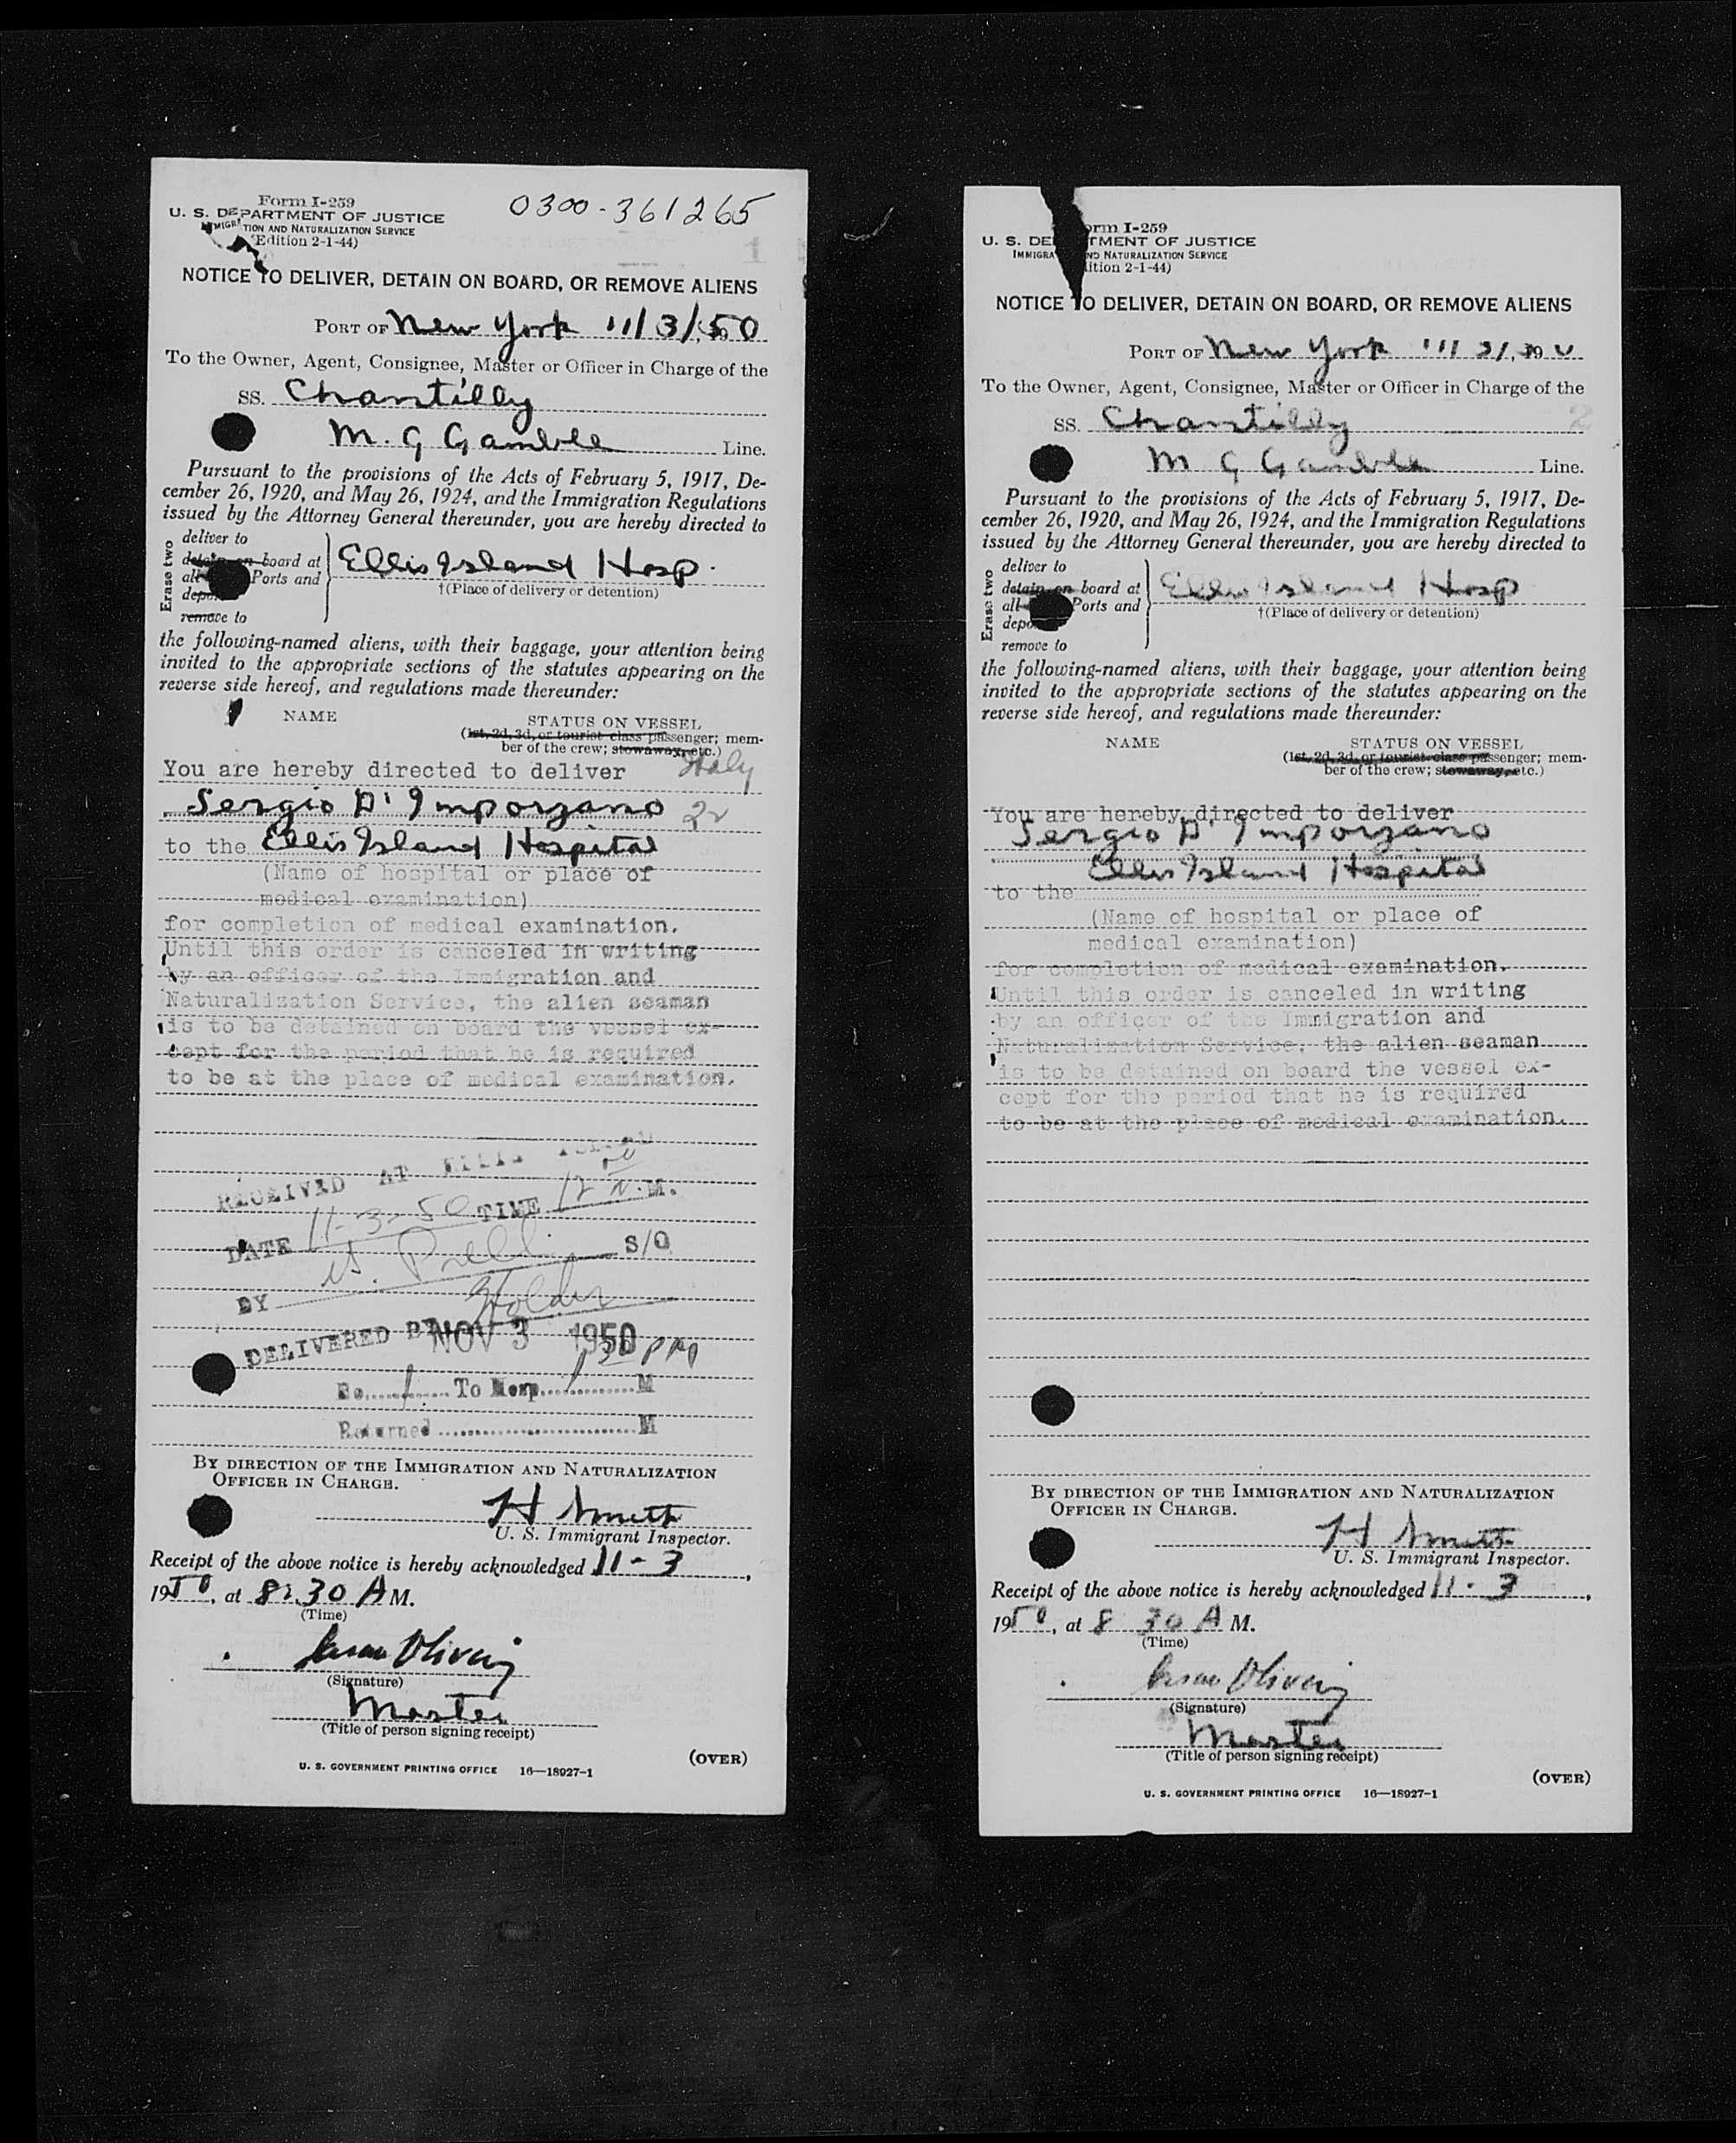 Form I-259
0300-361265
U. S. DEPARTMENT OF JUSTICE
IMMIGRATION AND NATURALIZATION SERVICE
(Edition 2-1-44)
1
NOTICE TO DELIVER, DETAIN ON BOARD, OR REMOVE ALIENS
PORT OF New York 11/3/, 1950
To the Owner, Agent, Consignee, Master or Officer in Charge of the
SS. Chantilly
M. G Gamble Line.
Pursuant to the provisions of the Acts of February 5, 1917, De-
cember 26, 1920, and May 26, 1924, and the Immigration Regulations
issued by the Attorney General thereunder, you are hereby directed to
Erase two
deliver to
detain on board at
all Ports and
remove to
Ellis Island Hosp.
†(Place of delivery or detention)
the following-named aliens, with their baggage, your attention being
invited to the appropriate sections of the statutes appearing on the
reverse side hereof, and regulations made thereunder:
NAME STATUS ON VESSEL
(1st, 2d, 3d, or tourist class passenger; mem-
ber of the crew; stowaway, etc.)
You are hereby directed to deliver Italy
Sergio D'Imporzano 22
to the Ellis Island Hospital
(Name of hospital or place of
medical examination)
for completion of medical examination.
Until this order is canceled in writing
by an officer of the Immigration and
Naturalization Service, the alien seaman
is to be detained on board the vessel ex-
cept for the period that he is required
to be at the place of medical examination.
RECEIVED AT ELLIS ISLAND
DATE 11-3-50 TIME 12 N.M.
BY S/O
DELIVERED BY Holder
NOV 3 1950
PM
To Hosp. M
Returned M
BY DIRECTION OF THE IMMIGRATION AND NATURALIZATION
OFFICER IN CHARGE.
H Smith
U. S. Immigrant Inspector.
Receipt of the above notice is hereby acknowledged 11-3,
1950, at 8:30 A M.
(Time)
(Signature)
Master
(Title of person signing receipt)
(OVER)
U. S. GOVERNMENT PRINTING OFFICE 16—18927-1
Form I-259
U. S. DEPARTMENT OF JUSTICE
IMMIGRATION AND NATURALIZATION SERVICE
(Edition 2-1-44)
NOTICE TO DELIVER, DETAIN ON BOARD, OR REMOVE ALIENS
PORT OF New York
To the Owner, Agent, Consignee, Master or Officer in Charge of the
2
SS. Chantilly
M G Gamble Line.
Pursuant to the provisions of the Acts of February 5, 1917, De-
cember 26, 1920, and May 26, 1924, and the Immigration Regulations
issued by the Attorney General thereunder, you are hereby directed to
Erase two
deliver to
detain on board at
all Ports and
remove to
Ellis Island Hosp
†(Place of delivery or detention)
the following-named aliens, with their baggage, your attention being
invited to the appropriate sections of the statutes appearing on the
reverse side hereof, and regulations made thereunder:
NAME STATUS ON VESSEL
(1st, 2d, 3d, or tourist class passenger; mem-
ber of the crew; stowaway, etc.)
You are hereby directed to deliver
Sergio D'Imporzano
Ellis Island Hospital
to the
(Name of hospital or place of
medical examination)
for completion of medical examination.
Until this order is canceled in writing
by an officer of the Immigration and
Naturalization Service, the alien seaman
is to be detained on board the vessel ex-
cept for the period that he is required
to be at the place of medical examination.
BY DIRECTION OF THE IMMIGRATION AND NATURALIZATION
OFFICER IN CHARGE.
H Smith
U. S. Immigrant Inspector.
Receipt of the above notice is hereby acknowledged 11-3,
1950, at 8 30 A M.
(Time)
(Signature)
Master
(Title of person signing receipt)
(OVER)
U. S. GOVERNMENT PRINTING OFFICE 16—18927-1